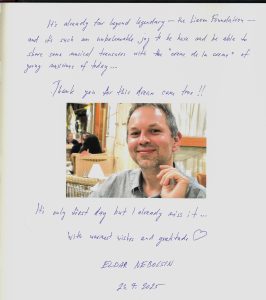 It's already far beyond legendary – the Liszen Foundation –
and it's such an unbelievable joy to be here and be able to
share some musical treasures with the "crème de la crème" of
young musicians of today...
Thank you for this dream come true!!
It's only first day but I already miss it...
With warmest wishes and gratitude ♡
ELDAR NEBOLSIN
22.9.2025